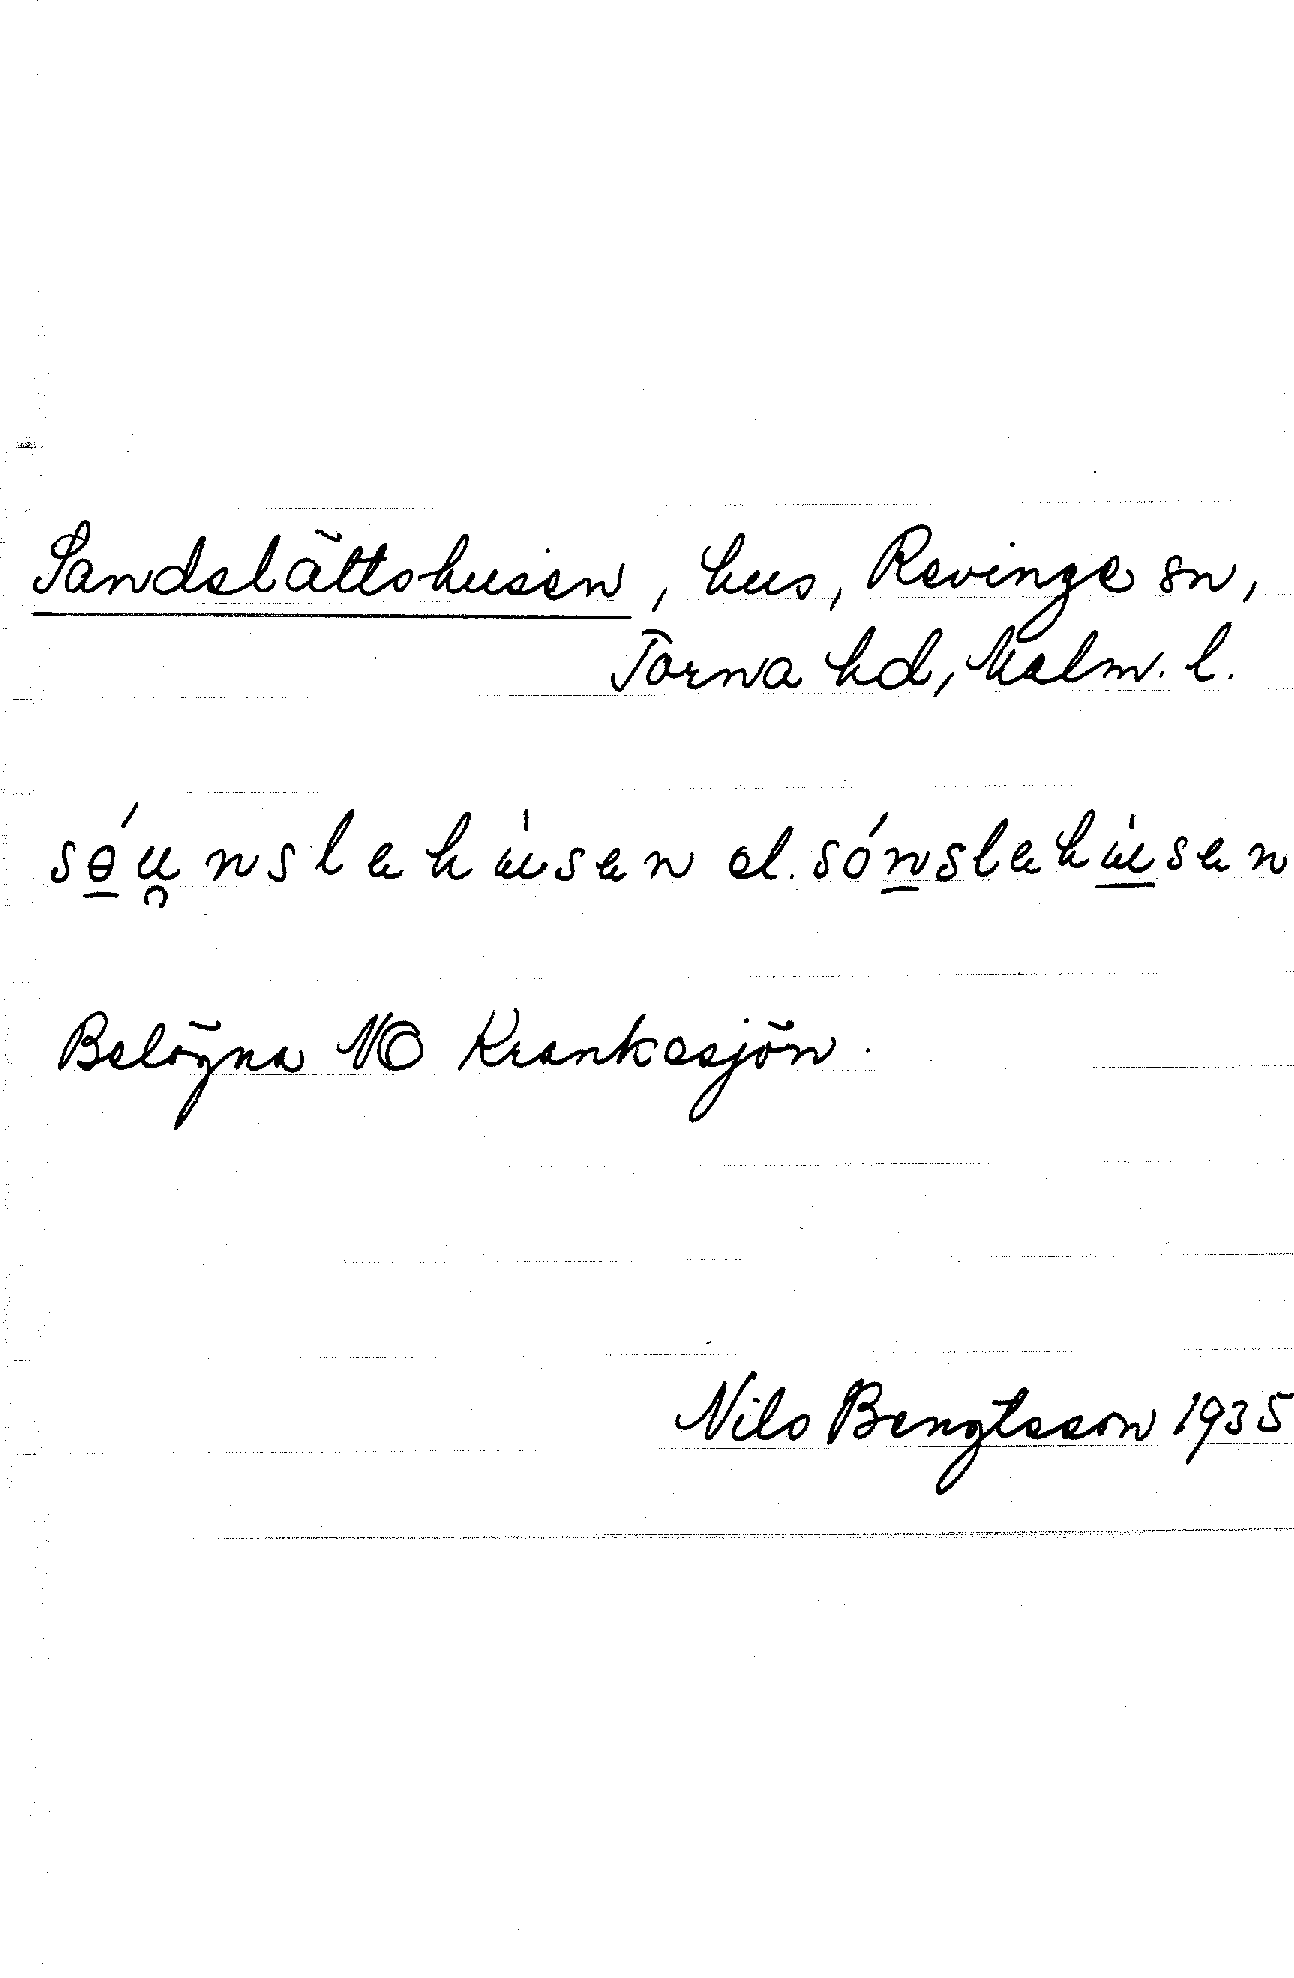 Sandslättshusen, hus, Revinge sn,
Torna hd, Malm. l.
sɵ́u̯nslahúsen el. sónslahúsen
Belägna NO Krankesjön.
Nils Bengtsson 1935